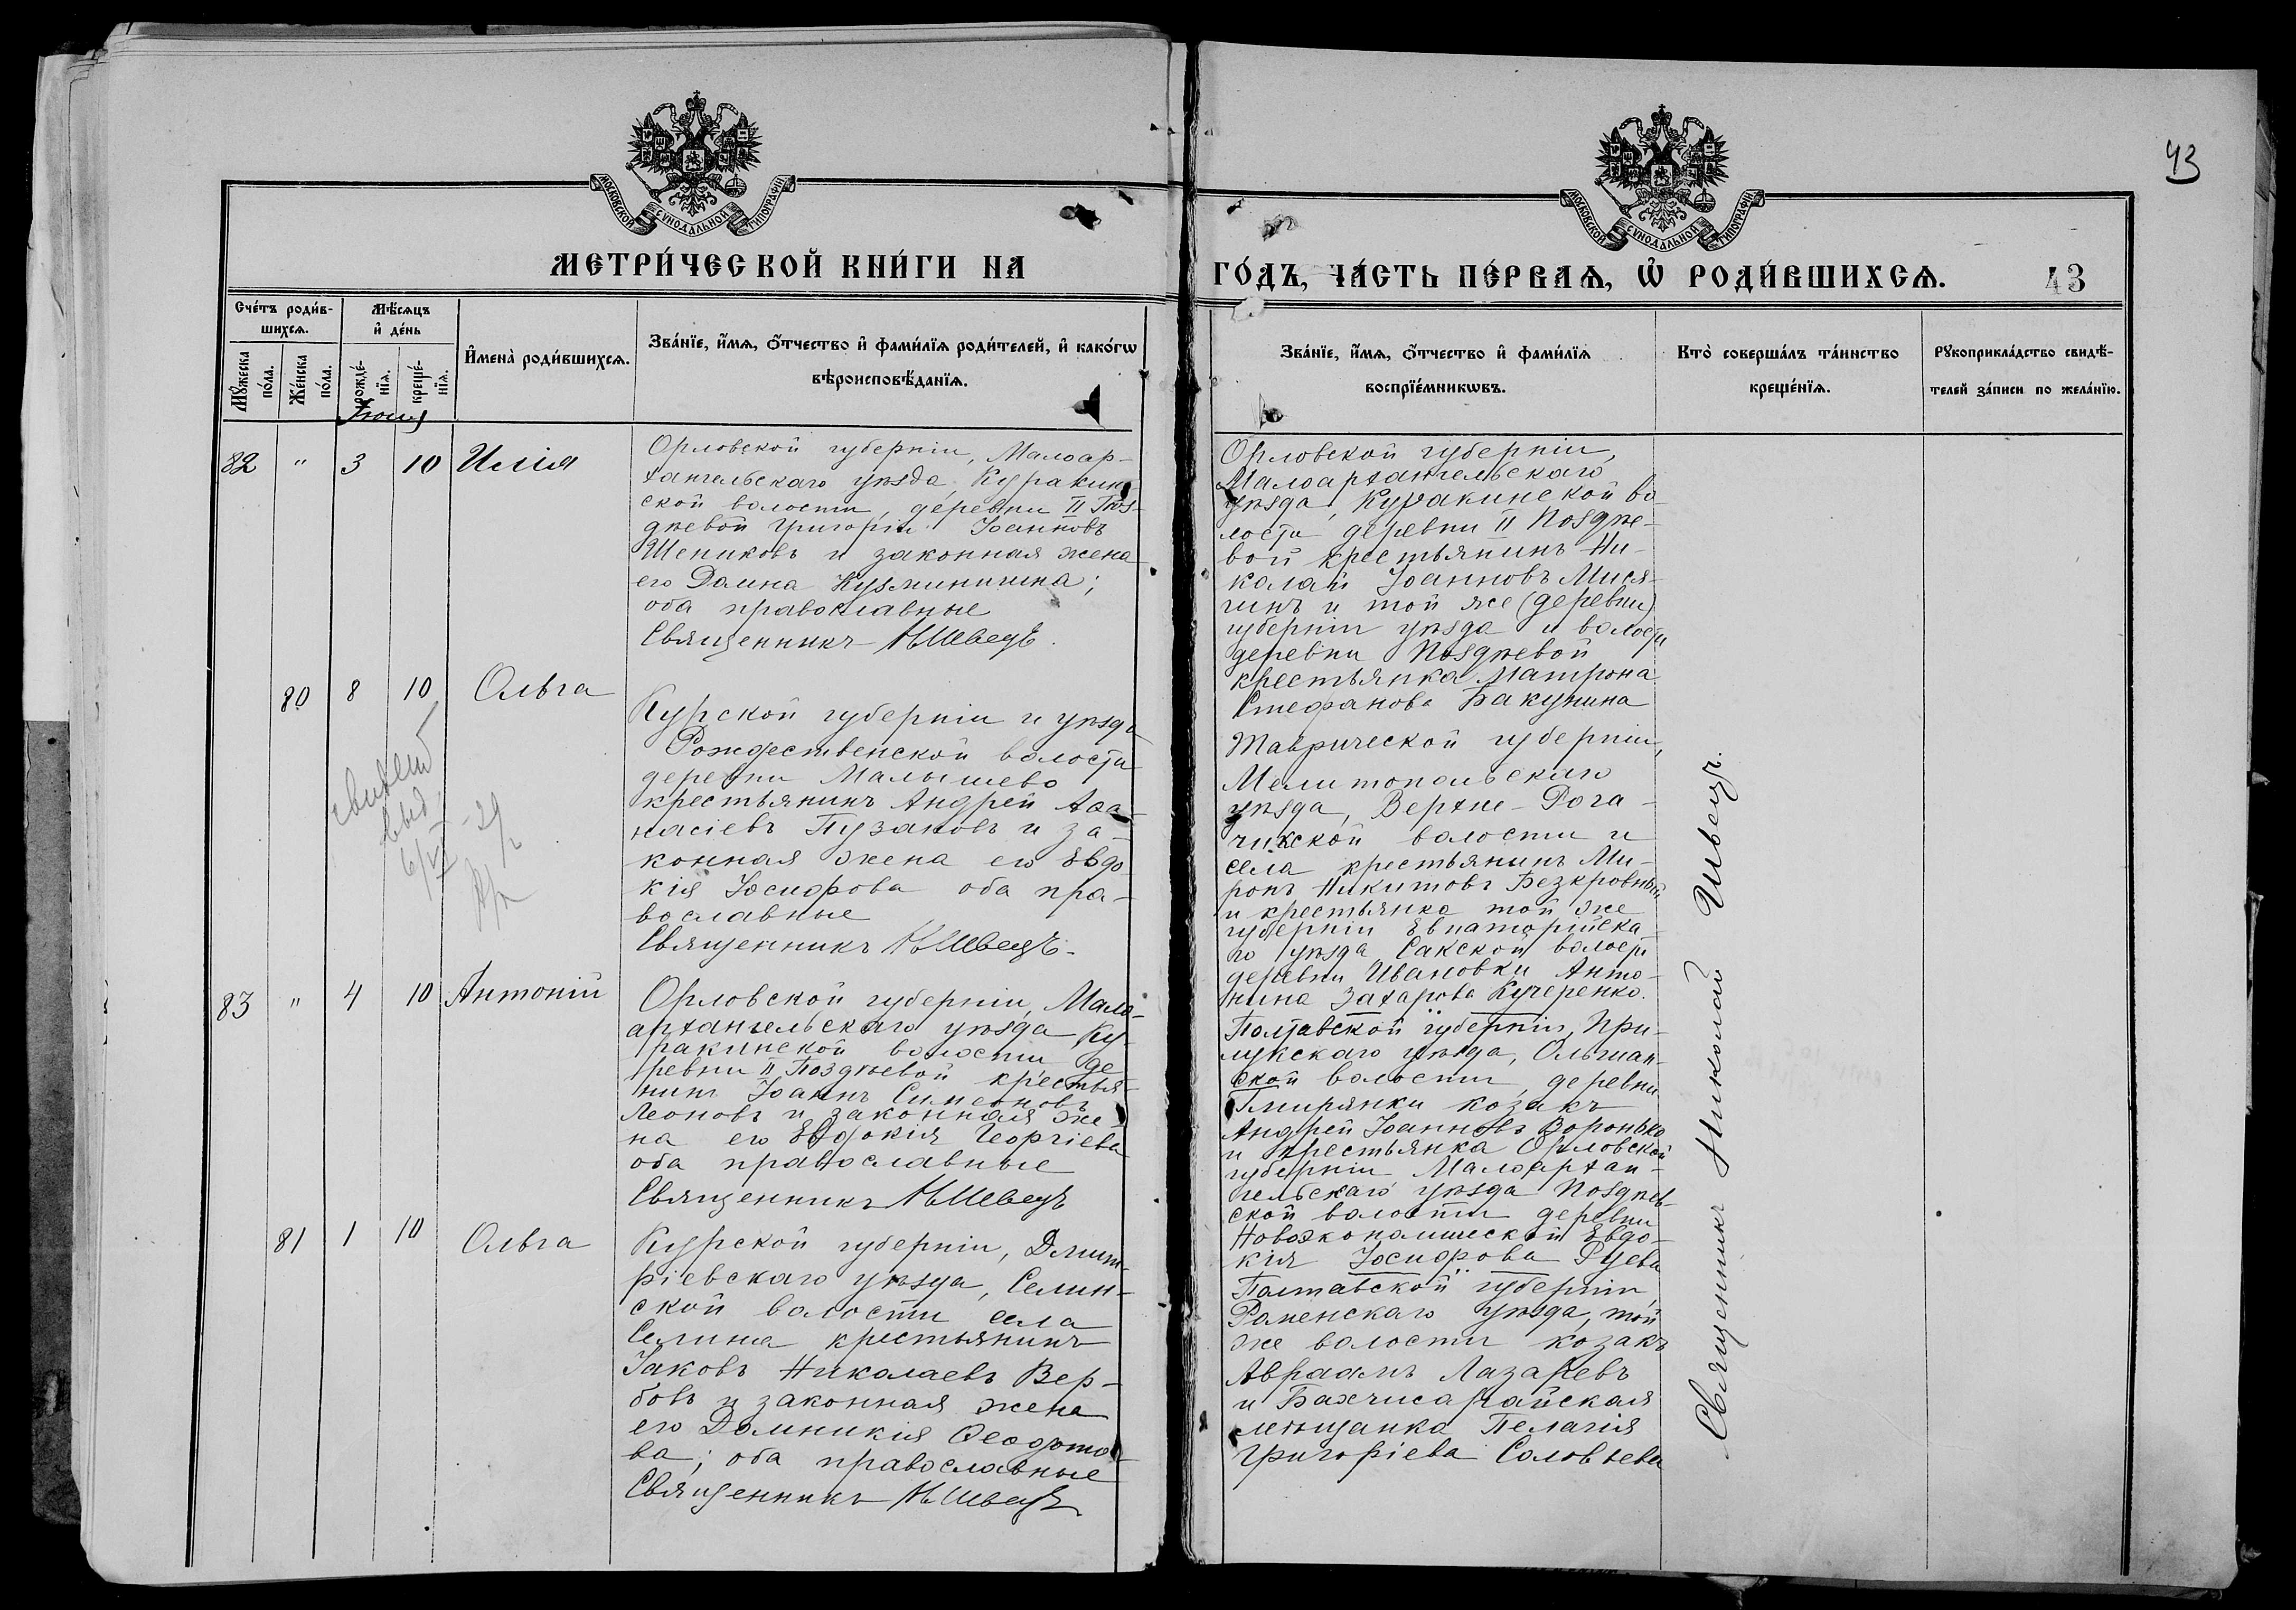 43
МОСКОВСКОЙ СѴНОДАЛЬНОЙ ТИПОГРАФІИ
МОСКОВСКОЙ СѴНОДАЛЬНОЙ ТИПОГРАФІИ
МЕТРИ́ЧЕСКОЙ КНИ́ГИ НА
ГО́ДЪ, ЧА́СТЬ ПЕ́РВАѦ, Ѡ҆ РОДИ́ВШИХСѦ.
43
Сче́тъ роди́в-
шихсѧ.
Мѣ́сѧцъ
и҆ де́нь
Мꙋ́жеска
по́ла.
Же́нска
по́ла.
рожде́-
нїѧ.
креще́-
нїѧ.
И҆мена̀ роди́вшихсѧ.
Зва́нїе, и҆́мѧ, ѻ҆́тчество и҆ фами́лїѧ роди́телей, и҆ како́гѡ
вѣроисповѣ́данїѧ.
Зва́нїе, и҆́мѧ, ѻ҆́тчество и҆ фами́лїѧ
воспрїе́мникѡвъ.
Кто̀ соверша́лъ та́инство
креще́нїѧ.
Рꙋкоприкла́дство свидѣ́-
телей за́писи по жела́нїю.
Іюнь
82 " 3 10 Илія
Орловской губерніи, Малоар-
хангельскаго уѣзда, Куракин-
ской волости, деревни II Поз-
днѣевой Григорій Іоанновъ
Шениковъ и законная жена
его Домна Кузьминишна;
оба православные
Священникъ Н Швецъ.
Орловской губерніи,
Малоархангельскаго
уѣзда, Куракинской во
лости деревни II Позднѣе-
вой крестьянинъ Ни-
колай Іоанновъ Мися-
чинъ и той же (деревни)
губерніи уѣзда и волости
деревни Позднѣевой
крестьянка Матрона
Стефанова Бакунина
80 8 10 Ольга
Курской губерніи и уѣзда
Рождественской волости
деревни Малышево
крестьянинъ Андрей Аѳа-
насіевъ Пузановъ и за-
конная жена его Евдо
кія Іосифова оба пра-
вославные
Священникъ Н Швецъ.
Таврической губерніи,
Мелитопольскаго
уѣзда, Верхне-Рога-
чикской волости и
села крестьянинъ Ми-
ронъ Никитовъ Безкровный
и крестьянка той же
губерніи Евпаторійска-
го уѣзда Сакской волости
деревни Ивановки Анто-
нина Захарова Кучеренко.
83 " 4 10 Антоній
Орловской губерніи, Мало-
архангельскаго уѣзда Ку-
ракинской волости де
ревни II Позднѣевой крестья-
нинъ Іоаннъ Симеоновъ
Леоновъ и законная же-
на его Евдокія Георгіева
оба православные
Священникъ Н Швецъ
Полтавской губерніи, При-
лукскаго уѣзда, Ольшан-
ской волости, деревни
козакъ
Андрей Іоанновъ Воронько
и крестьянка Орловской
губерніи Малоархан-
гельскаго уѣзда Позднѣев-
ской волости деревни
Евдо-
кія Іосифова
81 1 10 Ольга
Курской губерніи, Дмит-
ріевскаго уѣзда, Селин-
ской волости села
Селина крестьянинъ
Іаковъ Николаевъ Вер-
бовъ и законная жена
его Домникія Ѳеодото-
ва; оба православные
Священникъ Н Швецъ
Полтавской губерніи,
Роменскаго уѣзда, той
же волости козакъ
Авраамъ Лазаревъ
и Бахчисарайская
мѣщанка Пелагія
Григоріева Соловьева
Священникъ Николай Швецъ.